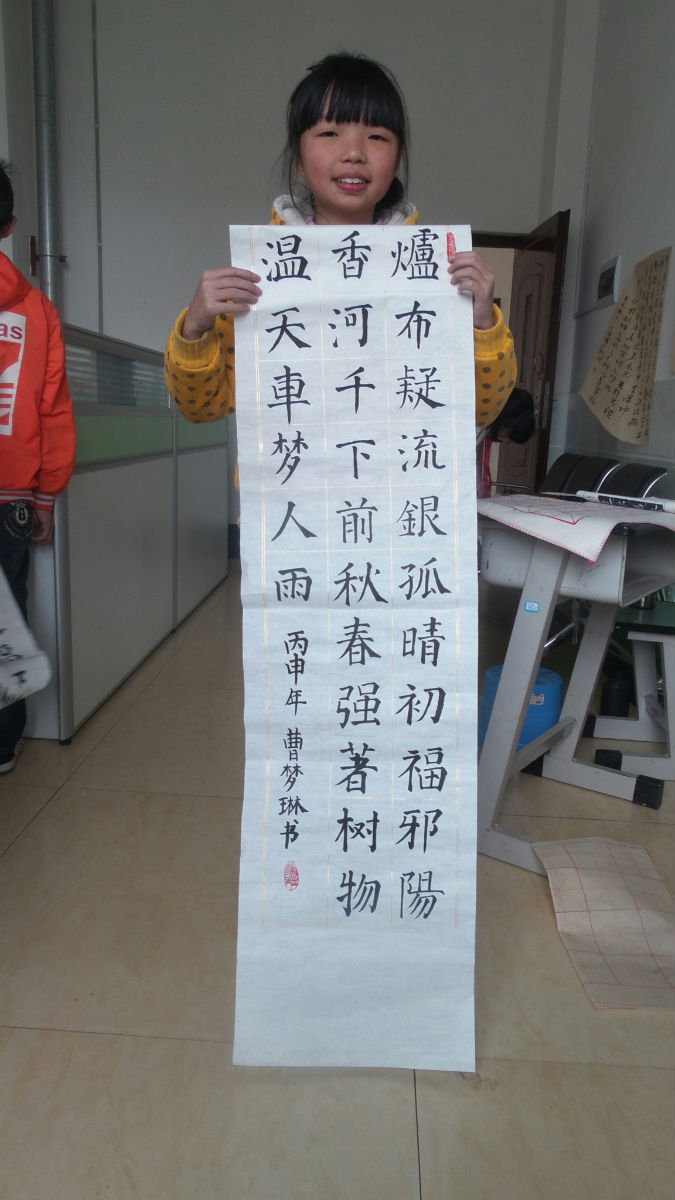 爐布疑流銀孤晴初福邪陽
香河千下前秋春强著树物
温天車梦人雨
丙申年 曹梦琳书
as